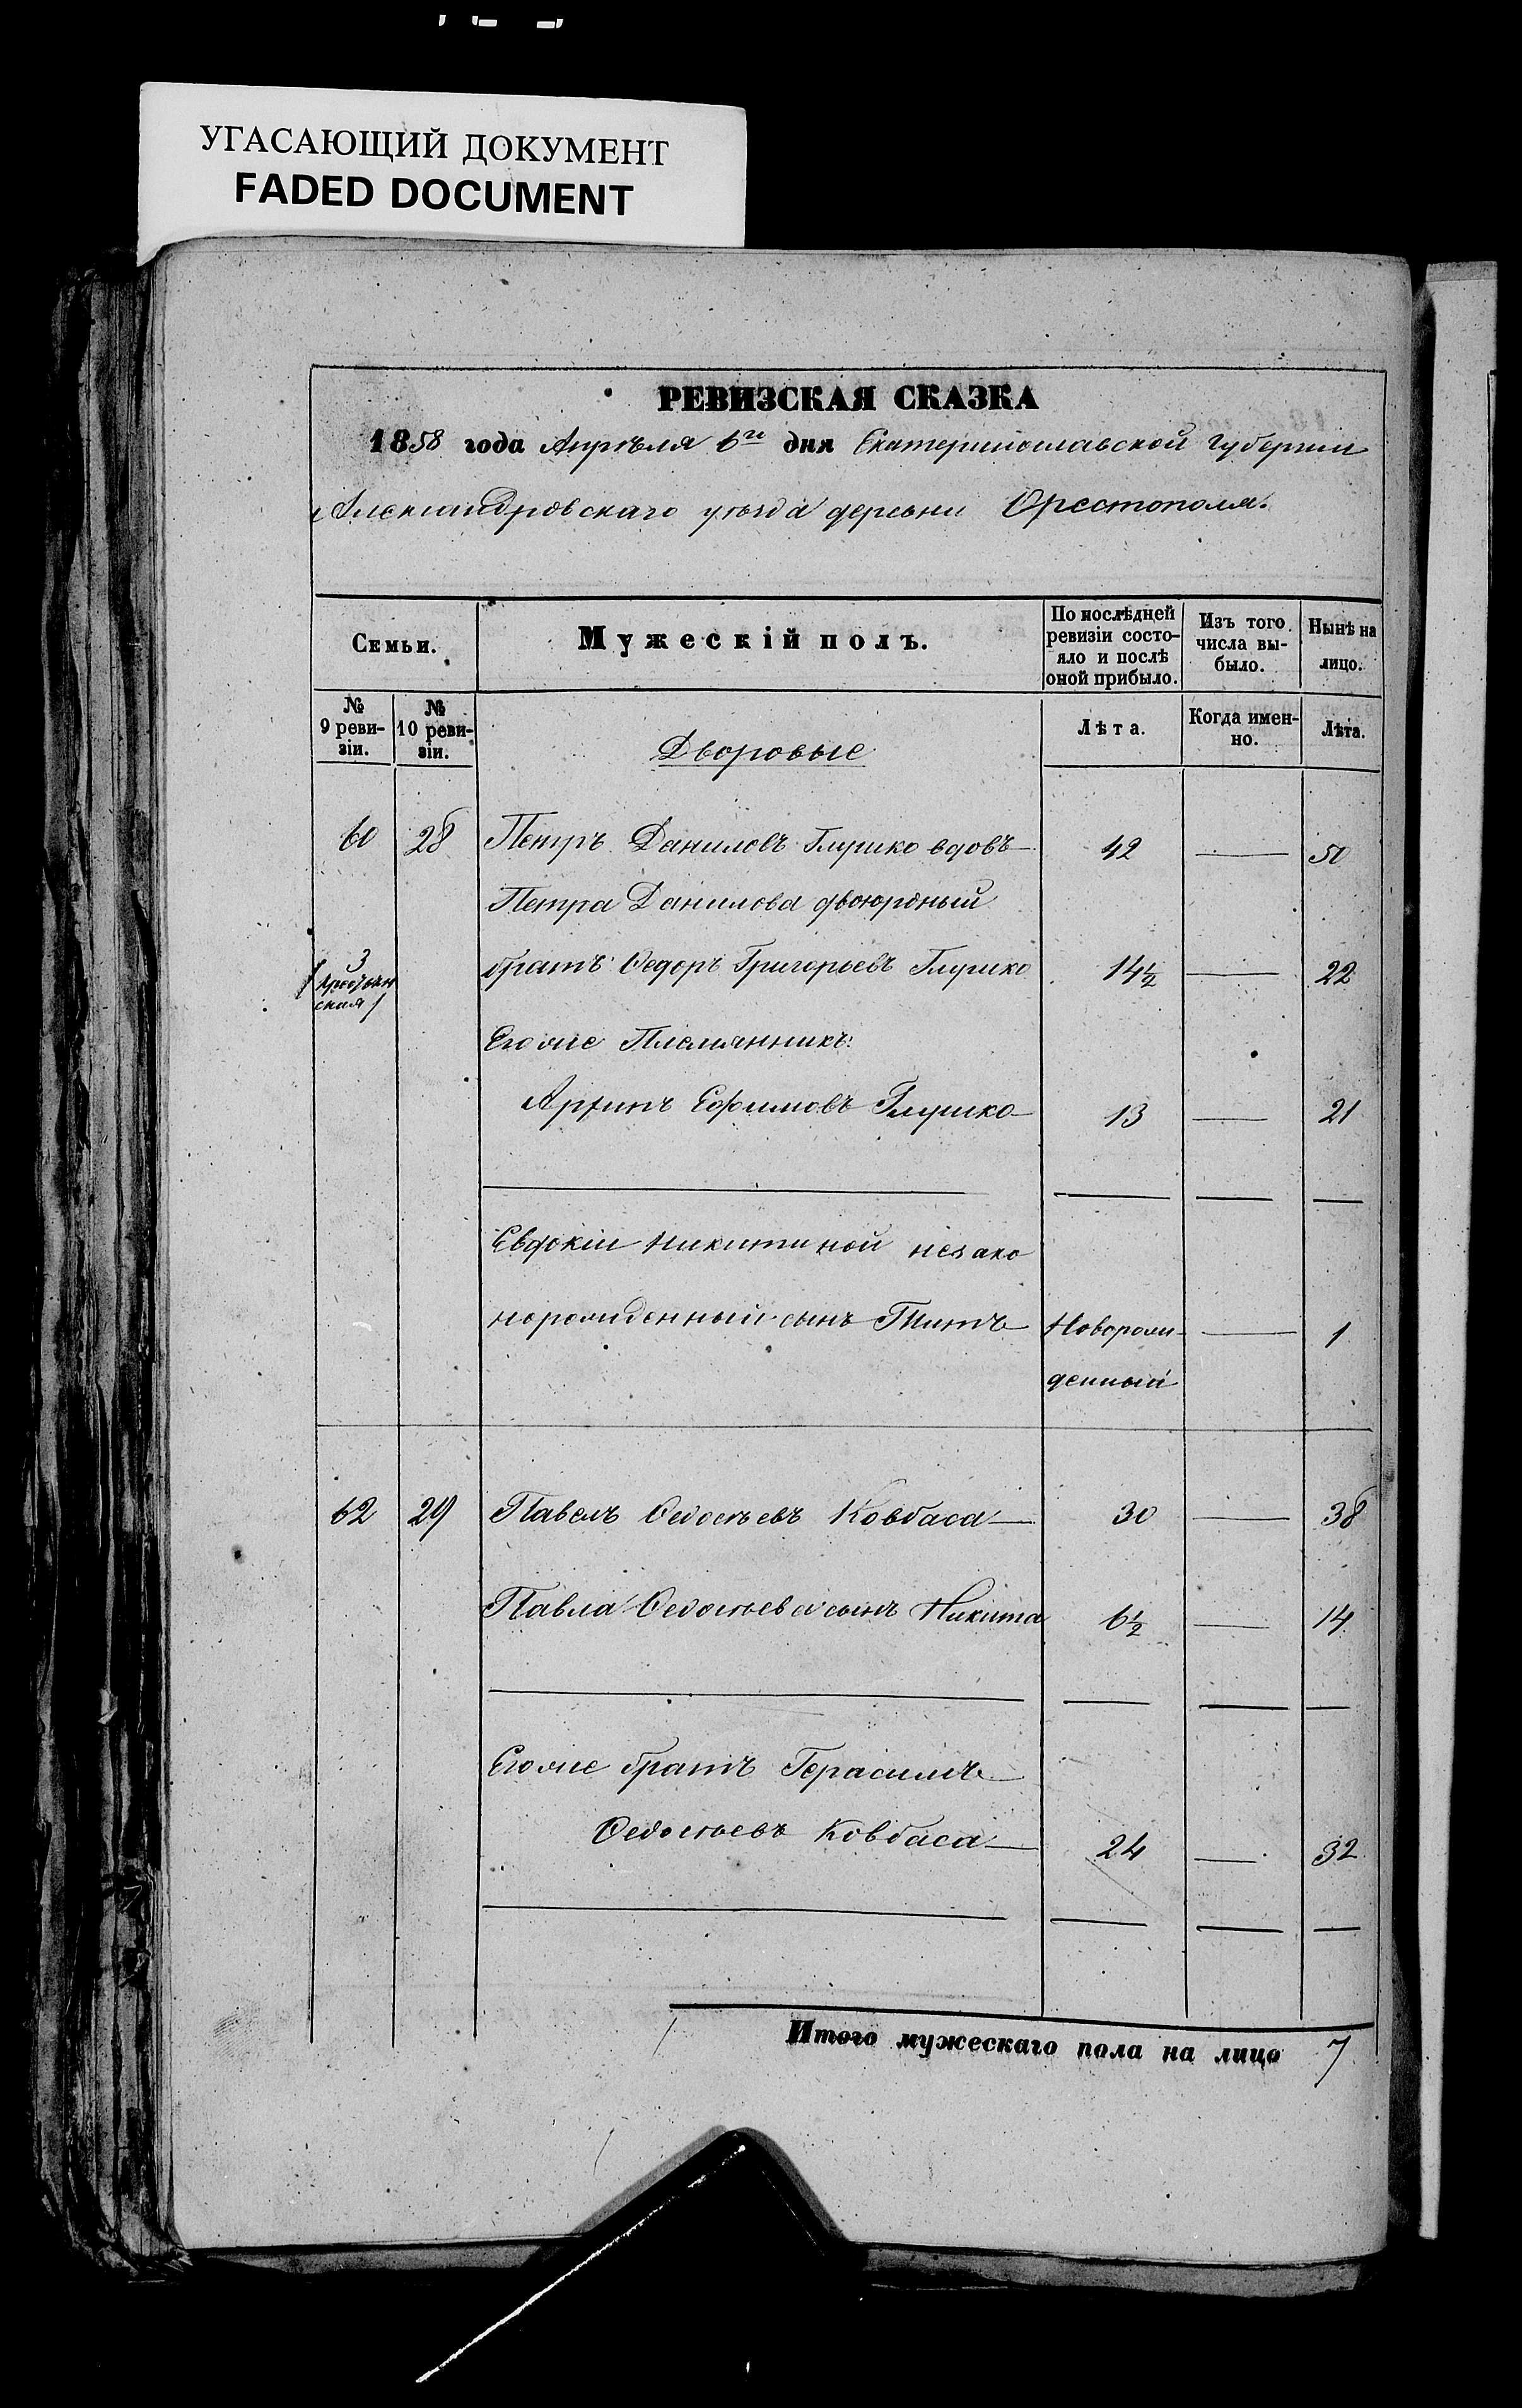 УГАСАЮЩИЙ ДОКУМЕНТ
FADED DOCUMENT
РЕВИЗСКАЯ СКАЗКА
1858 года Апрѣля 6го дня Екатеринославской губерніи
Александровскаго уѣзда деревни Орестополя.
Семьи. Мужескій полъ. По послѣдней ревизіи состояло и послѣ оной прибыло. Изъ того числа выбыло. Нынѣ на лицо.
№ 9 ревизіи. № 10 ревизіи. Лѣта. Когда именно. Лѣта.
Дворовые
60 28 Петръ Даниловъ Глушко вдовъ 42 — 50
Петра Данилова двоюрдный
3 братъ Федоръ Григорьевъ Глушко 14½ — 22
Егоже Племянникъ:
Ефимовъ Глушко 13 — 21
Евдокіи Никитиной незако
норожденный сынъ Титъ Новорож- — 1
денный
62 29 Павелъ Федосѣевъ Ковбаса 30 — 38
Павла Федосѣева сынъ Никита 6½ — 14
Егоже братъ Герасимъ
Федосѣевъ Ковбаса 24 — 32
Итого мужескаго пола на лицо 7